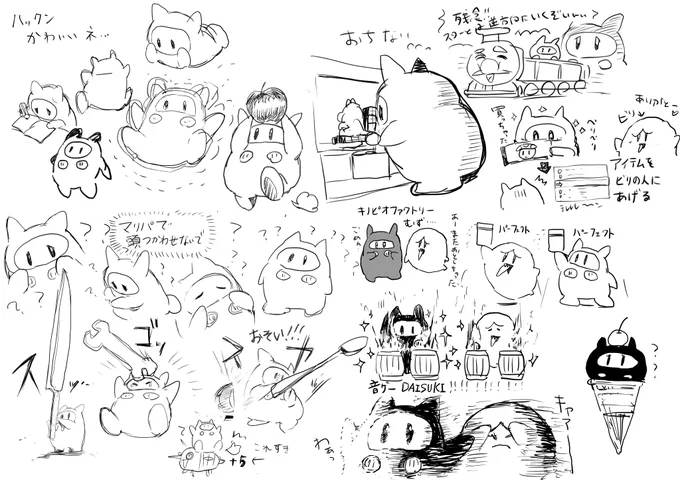 ハックン
かわいいネ…
おちない
残念!!
スターとは逆方向にいくぞいい〜?
買っちゃった
ペリペリ
ありがとー
ビリ
アイテムを
ビリの人に
あげる
マリパで
頭つかわせないで
? ? ? ? ?
キノピオファクトリー
むず…
ごめん
あーまたおとこちゃった
パーフェクト
パーフェクト
ス
ゴッ
おそい!!!
ス
カ
音ゲー DAISUKI!!
+5←
これすき
わぁっ
キャァ
? ?